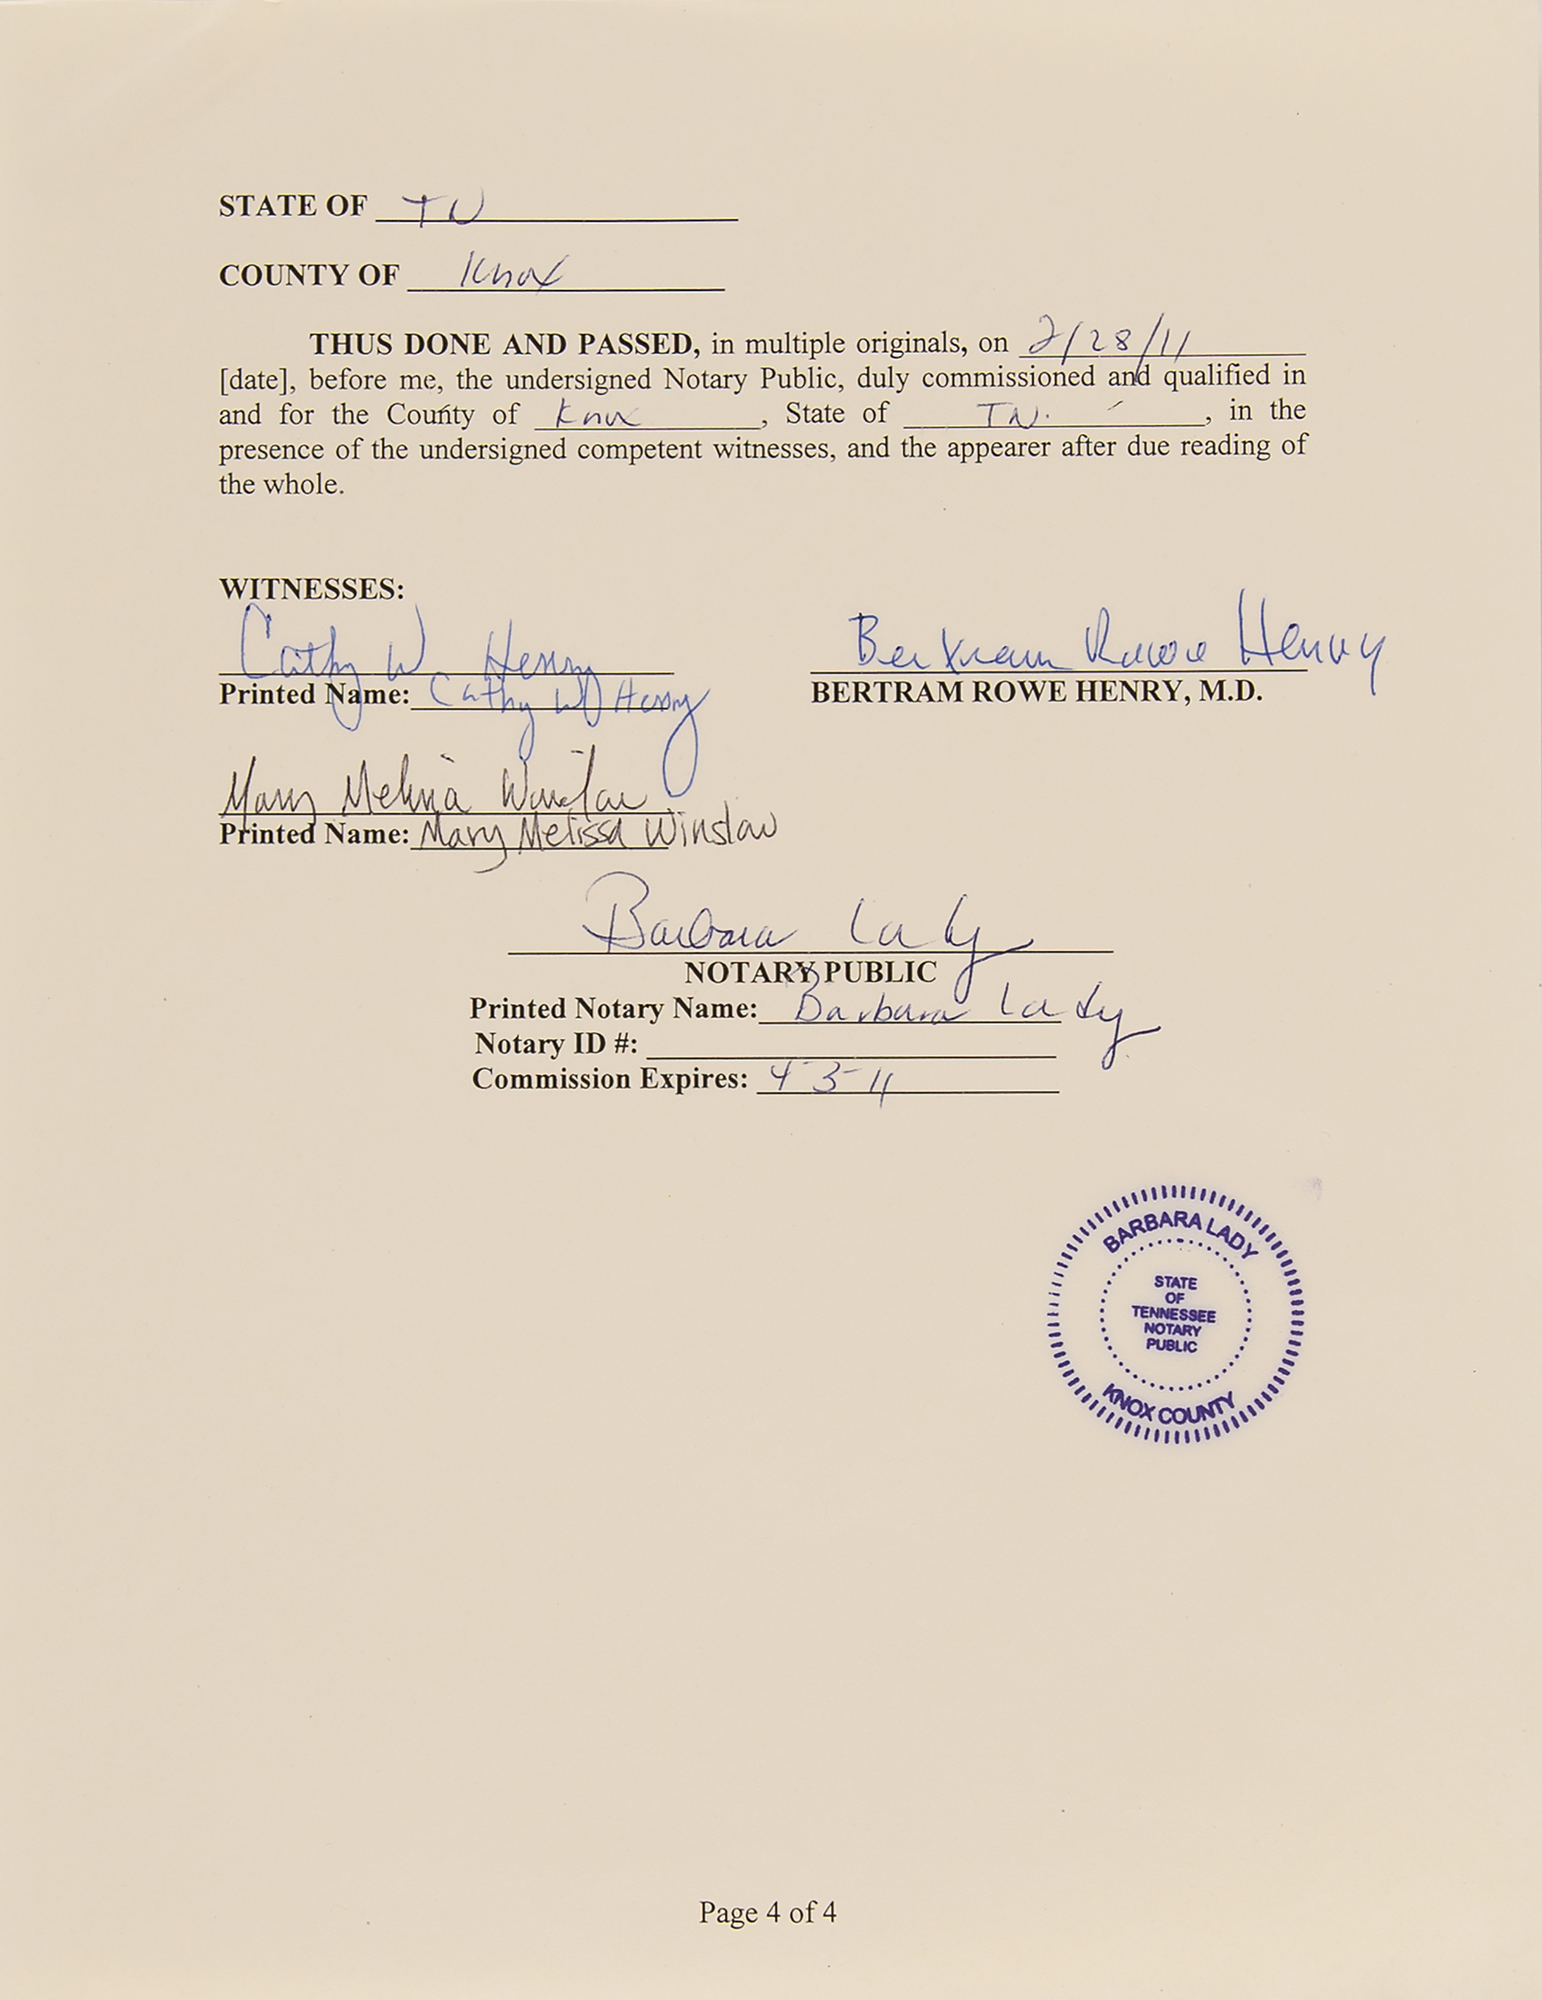 STATE OF TN
COUNTY OF Knox
THUS DONE AND PASSED, in multiple originals, on 2/28/11
[date], before me, the undersigned Notary Public, duly commissioned and qualified in
and for the County of Knox, State of TN., in the
presence of the undersigned competent witnesses, and the appearer after due reading of
the whole.
WITNESSES:
Cathy W. Henry
Bertram Rowe Henry
Printed Name: Cathy W Henry
BERTRAM ROWE HENRY, M.D.
Mary Melissa Winslow
Printed Name: Mary Melissa Winslow
Barbara Lady
NOTARY PUBLIC
Printed Notary Name: Barbara Lady
Notary ID #:
Commission Expires: 4-3-11
BARBARA LADY
STATE
OF
TENNESSEE
NOTARY
PUBLIC
KNOX COUNTY
Page 4 of 4